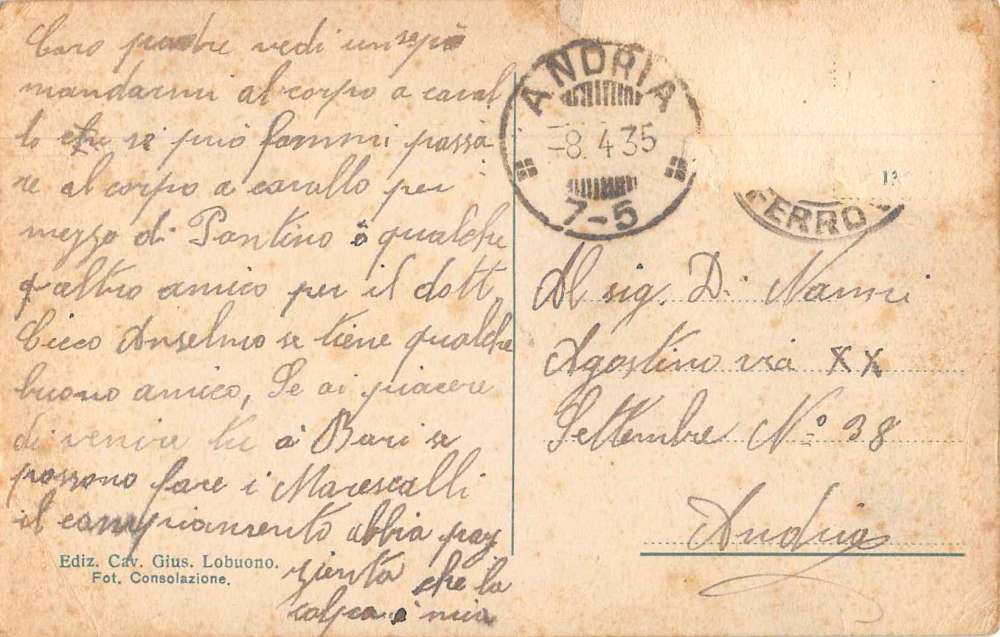 Caro padre vedi un sepò
mandarmi al corpo a caval
lo che si può fammi passa
re al corpo a cavallo per
mezzo di Pantino o qualche
altro amico per il dott
Cicco Anselmo se tiene qualche
buono amico, Se ai piacere
di venire tu a Bari se
possono fare i Marescalli
il campiamento abbia paz
zienta che la
colpa è mia
Ediz. Cav. Gius. Lobuono.
Fot. Consolazione.
ANDRIA
-8.4.35
7-5
FERRO
Al sig. Di Nanni
Agostino via XX
Settembre N° 38
Andria